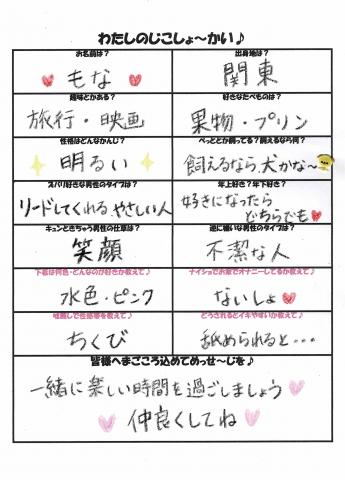 わたしのじこしょ～かい♪
お名前は？
もな
出身地は？
関東
趣味とかある？
旅行・映画
好きなたべものは？
果物・プリン
性格はどんなかんじ？
明るい
ぺっととか飼ってる？飼えるなら何？
飼えるなら、犬かな～
ズバリ好きな男性のタイプは？
リードしてくれる、やさしい人
年上好き？年下好き？
好きになったら
どちらでも
キュンときちゃう男性の仕草は？
笑顔
逆に嫌いな男性のタイプは？
不潔な人
下着は何色・どんなのが好きか教えて♪
水色・ピンク
ナイショでお家でオナニーしてるか教えて♪
ないしょ
吐息して性感帯を教えて♪
ちくび
どうされるとイキやすいか教えて♪
舐められると…
皆様へまごころ込めてめっせ～じを♪
一緒に楽しい時間を過ごしましょう
仲良くしてね